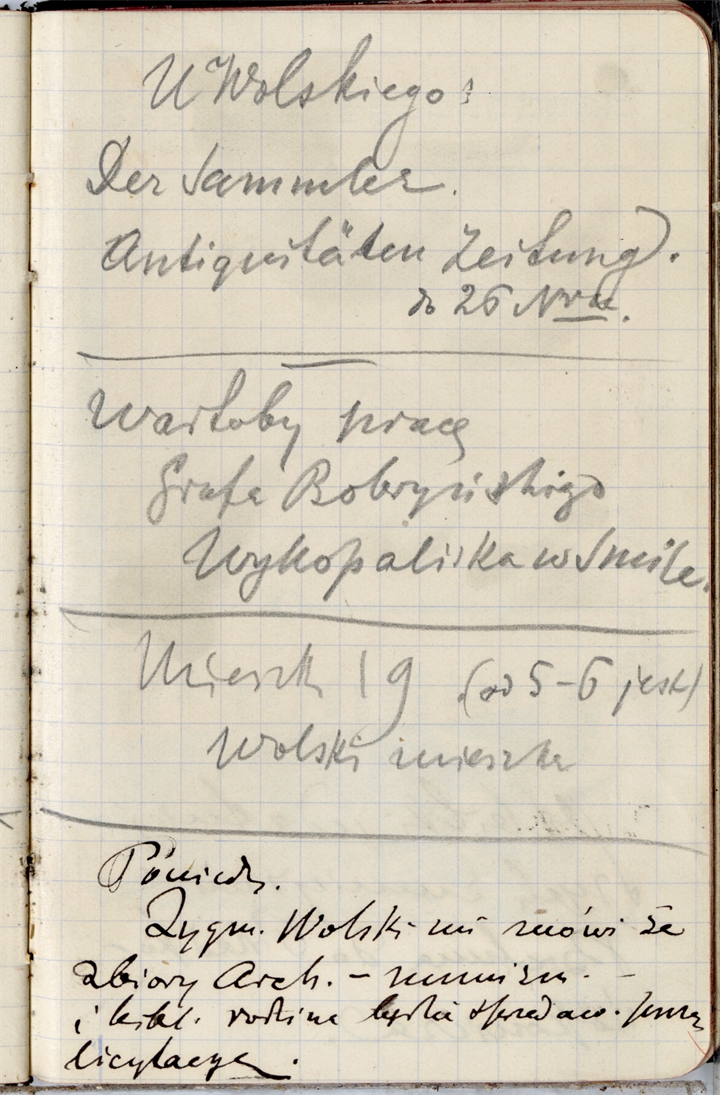 U Wolskiego:
Der Sammler.
Antiquitäten Zeitung).
do 26 Nru.
Wartoby pracę
Grafa Bobryńskiego
Wykopaliska w Smile.
Mieszk 19 (od 5-6 jest)
Wolski mieszka
Poniedz.
Zygm. Wolski mi mówi że
zbiory Arch. - numizm. -
i bibl. rodzina będzie sprzedaw. przez
licytacyę.